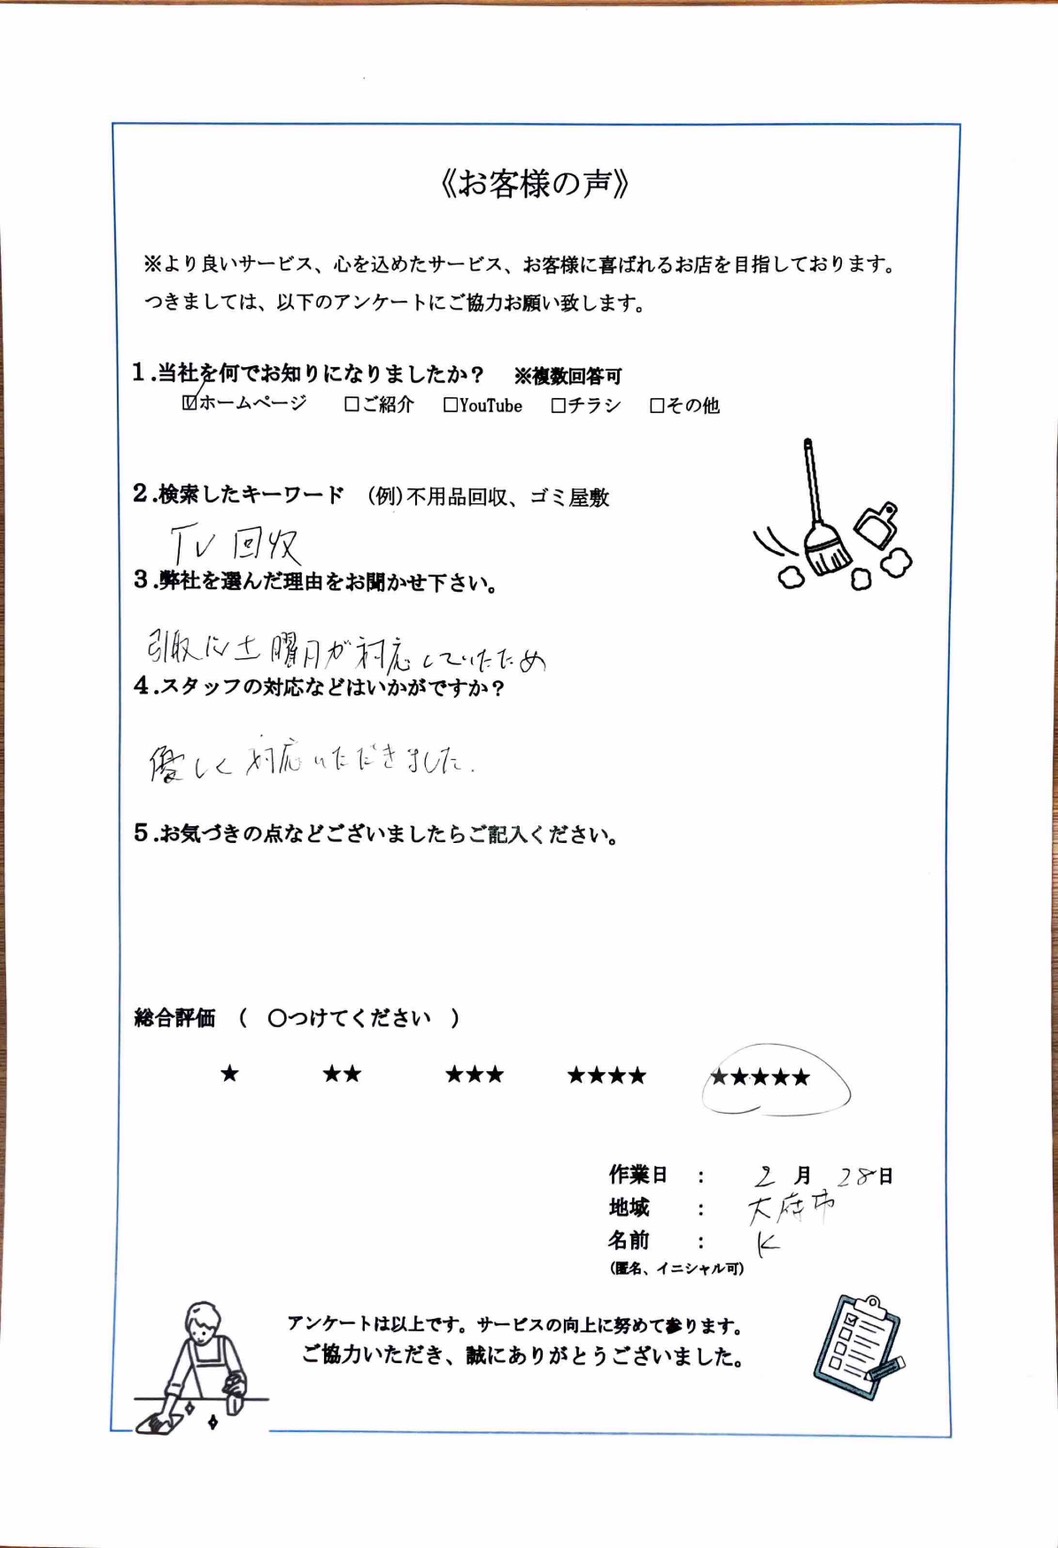 《お客様の声》
※より良いサービス、心を込めたサービス、お客様に喜ばれるお店を目指しております。
つきましては、以下のアンケートにご協力お願い致します。
1.当社を何でお知りになりましたか？ ※複数回答可
☑ホームページ □ご紹介 □YouTube □チラシ □その他
2.検索したキーワード (例)不用品回収、ゴミ屋敷
TV 回収
3.弊社を選んだ理由をお聞かせ下さい。
引取に土曜日が対応していたため
4.スタッフの対応などはいかがですか？
優しく対応いただきました.
5.お気づきの点などございましたらご記入ください。
総合評価 ( 〇つけてください )
★ ★★ ★★★ ★★★★ ★★★★★
作業日 : 2 月 28日
地域 : 大府市
名前 : K
(匿名、イニシャル可)
アンケートは以上です。サービスの向上に努めて参ります。
ご協力いただき、誠にありがとうございました。